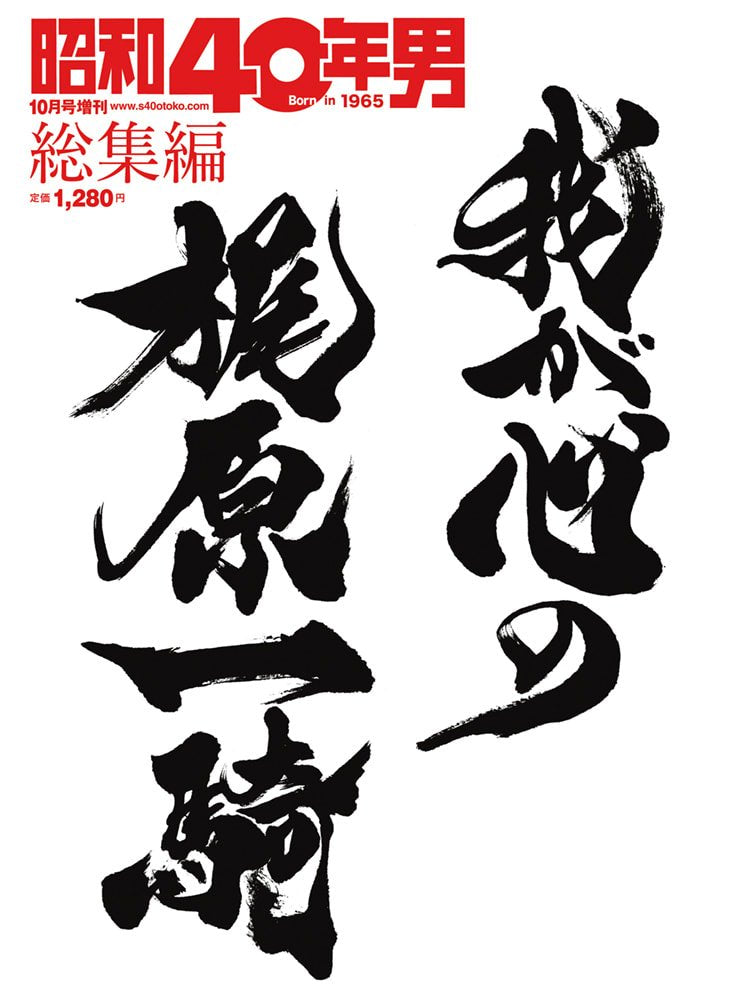 昭和40年男
Born in 1965
10月号増刊 www.s40otoko.com
総集編
定価 1,280円
我が心の
梶原一騎